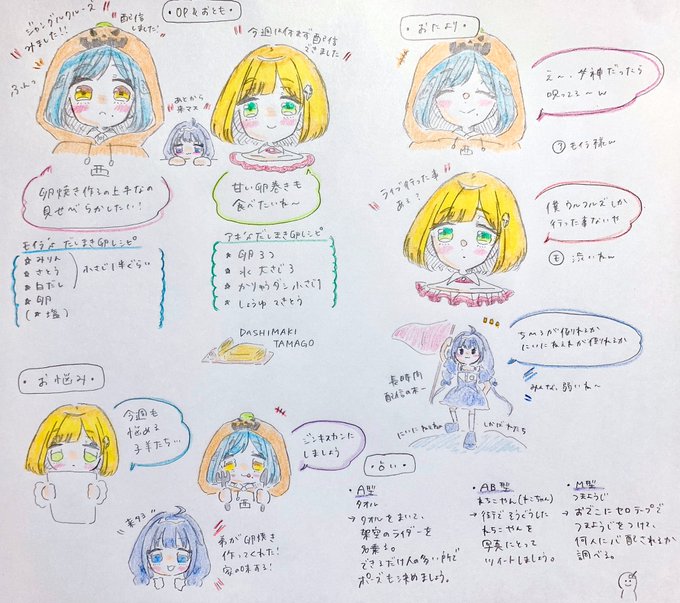 ・OP&おとも・
ジャングルクルーズ
みました!!
配信
しました!
ふんっ
あとから
来マス
今週は何とか配信
できました
卵焼き作るの上手なの
見せびらかしたい!
甘い卵巻きも
食べたいね〜
モイラ's だしまき卵レシピ
★ みりん
★ さとう
★ 白だし
小さじ1半ぐらい
★ 卵
(★ 塩)
アキ's だしまき卵レシピ
★ 卵3つ
★ 水 大さじ3
★ かりゅうダシ 小さじ1
★ しょうゆ てきとう
DASHIMAKI
TAMAGO
・おたより・
え〜、女神だったら
呪ってる〜w
モイラ様w
ライブ行った事
ある?
僕ウルフルズしか
行った事ないや
渋いねw
長時間
配信の
にいにねえね
しかばねたち
みんな、弱いね〜
・お悩み・
今週も
悩める
子羊たち…
ジンギスカンに
しましょう
弟が卵焼き
作ってくれた!
家の味する!
・占い・
・A型
タオル
→ タオルをまいて、
架空のライダーを
名乗る。
できるだけ人の多い所で
ポーズも決めましょう。
・AB型
ねこちゃん(ねこちゃん)
→ 街でそうぐうした
ねこちゃんを
写真にとって
ツイートしましょう。
・M型
つまようじ
→ おでこにセロテープで
つまようじをつけて、
何人に心配されるか
調べる。